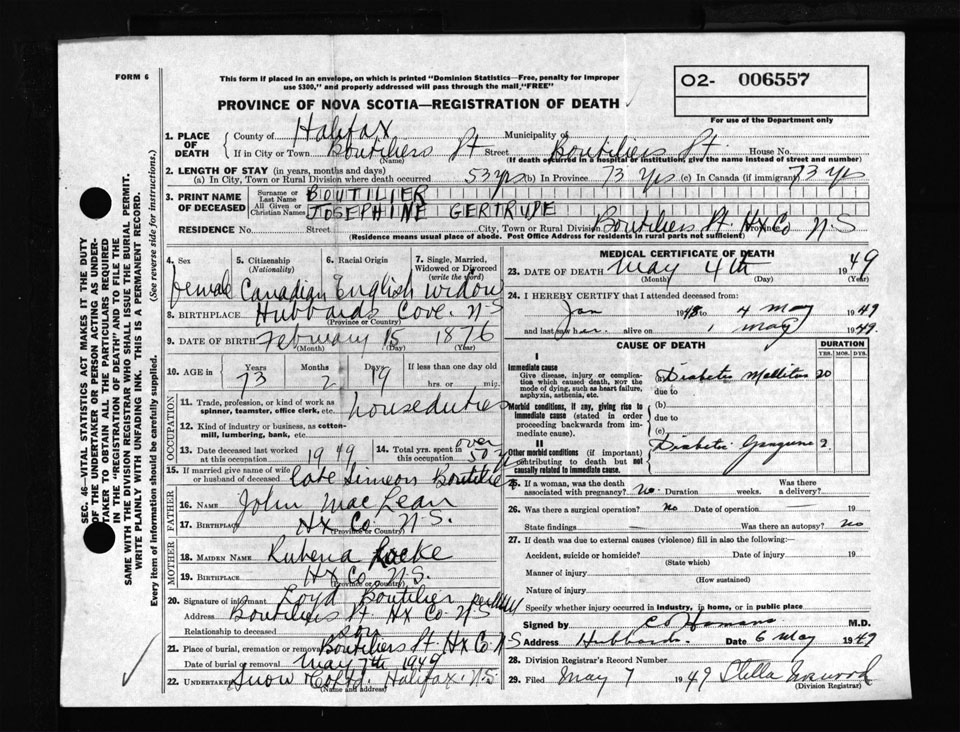 FORM 6
This form if placed in an envelope, on which is printed "Dominion Statistics—Free, penalty for improper
use $300," and properly addressed will pass through the mail "FREE"
O2- 006557
For use of the Department only
PROVINCE OF NOVA SCOTIA—REGISTRATION OF DEATH
1. PLACE OF DEATH
County of Halifax Municipality of
If in City or Town Boutiliers Pt Street Boutiliers Pt. House No.
(Name) (If death occurred in a hospital or institution, give the name instead of street and number)
2. LENGTH OF STAY (in years, months and days)
(a) In City, Town or Rural Division where death occurred 53 yrs (b) In Province 73 Yrs (c) In Canada (if immigrant) 73 yrs
3. PRINT NAME OF DECEASED
Surname or Last Name BOUTILIER
All Given or Christian Names JOSEPHINE GERTRUDE
RESIDENCE No. Street City, Town or Rural Division Boutiliers Pt. Hx Co Province N-S
(Residence means usual place of abode. Post Office Address for residents in rural parts not sufficient)
4. Sex female
5. Citizenship (Nationality) Canadian
6. Racial Origin English
7. Single, Married, Widowed or Divorced (write the word) Widow
8. BIRTHPLACE Hubbards Cove. N-S
(Province or Country)
9. DATE OF BIRTH February 15 1876
(Month) (Day) (Year)
10. AGE in Years 73 Months 2 Days 19 If less than one day old
hrs. or min.
OCCUPATION
11. Trade, profession, or kind of work as spinner, teamster, office clerk, etc. house duties
12. Kind of industry or business, as cotton-mill, lumbering, bank, etc.
13. Date deceased last worked at this occupation 1949
14. Total yrs. spent in this occupation over 50 yrs
15. If married give name of wife or husband of deceased late Simeon Boutilier
FATHER
16. NAME John MacLean
17. BIRTHPLACE Hx Co. N-S.
(Province or Country)
MOTHER
18. MAIDEN NAME Rubena
19. BIRTHPLACE Hx Co. N.S.
(Province or Country)
20. Signature of informant Loyd Boutilier
Address Boutiliers Pt Hx Co N-S
Relationship to deceased son
21. Place of burial, cremation or removal Boutiliers Pt Hx Co. N S
Date of burial or removal May 7th 1949
22. Undertaker Snow & Co Ltd. Halifax N-S.
(Name and address)
MEDICAL CERTIFICATE OF DEATH
23. DATE OF DEATH May 4th 1949
(Month) (Day) (Year)
24. I HEREBY CERTIFY that I attended deceased from
Jan 1948 to 4 May 1949
and last saw her alive on 1 May 1949.
CAUSE OF DEATH DURATION
YRS. MOS. DYS.
I
Immediate cause
Give disease, injury or complication which caused death, not the mode of dying, such as heart failure, asphyxia, asthenia, etc.
(a) Diabetes Mellitus 20
due to
Morbid conditions, if any, giving rise to immediate cause (stated in order proceeding backwards from immediate cause).
(b)
due to
(c)
II
Other morbid conditions (if important) contributing to death but not causally related to immediate cause.
Diabetic Gangrene 2
25. If a woman, was the death associated with pregnancy? no. Duration weeks. Was there a delivery?
26. Was there a surgical operation? No Date of operation 19
State findings Was there an autopsy? no
27. If death was due to external causes (violence) fill in also the following:—
Accident, suicide or homicide? Date of injury 19
(State which)
Manner of injury
(How sustained)
Nature of injury
Specify whether injury occurred in industry, in home, or in public place
Signed by M.D.
Address Hubbards. Date 6 May 1949
28. Division Registrar's Record Number
29. Filed May 7 1949 Stella
(Division Registrar)
SEC. 46—VITAL STATISTICS ACT MAKES IT THE DUTY
OF THE UNDERTAKER OR PERSON ACTING AS UNDER-
TAKER TO OBTAIN ALL THE PARTICULARS REQUIRED
IN THE "REGISTRATION OF DEATH" AND TO FILE THE
SAME WITH THE DIVISION REGISTRAR WHO SHALL ISSUE THE BURIAL PERMIT.
WRITE PLAINLY WITH UNFADING INK. THIS IS A PERMANENT RECORD.
Every item of information should be carefully supplied. (See reverse side for instructions.)